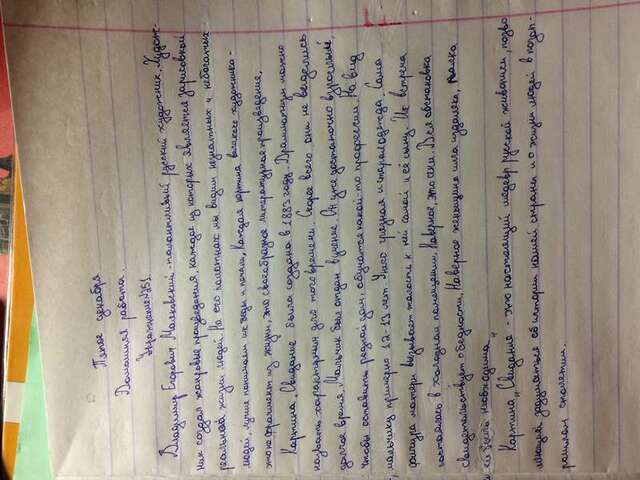 Пятое декабря
Домашняя работа.
Упражнение №251.
Владимир Егорович Маковский - талантливый русский художник. Худож-
ник создал жанровые произведения, каждое из которых является зарисовкой
реальной жизни людей. На его полотнах мы видим незнатных и небогатых
людей, лучше понимаем их и Каждая картина великого художника -
это фрагмент из жизни, это своеобразное литературное произведение.
Картина „Свидание" была создана в 1883 году. Драматизм можно
назвать характерным для того времени. Скорее всего они не виделись
долгое время. Мальчик был отдан в учение. Он уже достаточно взрослый,
чтобы оставить родной дом, обучаться какой-то профессии. На вид
мальчику примерно 12-13 лет. У него грязная и старая одежда. Сама
фигура матери вызывает жалость к ней самой и её сыну. Их встреча
состоялась в холодном помещении, наверное, это сени. Вся обстановка
свидетельствует о бедности. Наверное женщина шла издалека, палка
ей была необходима.
Картина „Свидание" - это настоящий шедевр русской живописи, позво-
ляющий задуматься об истории нашей страны и о жизни людей в поза-
прошлом столетии.